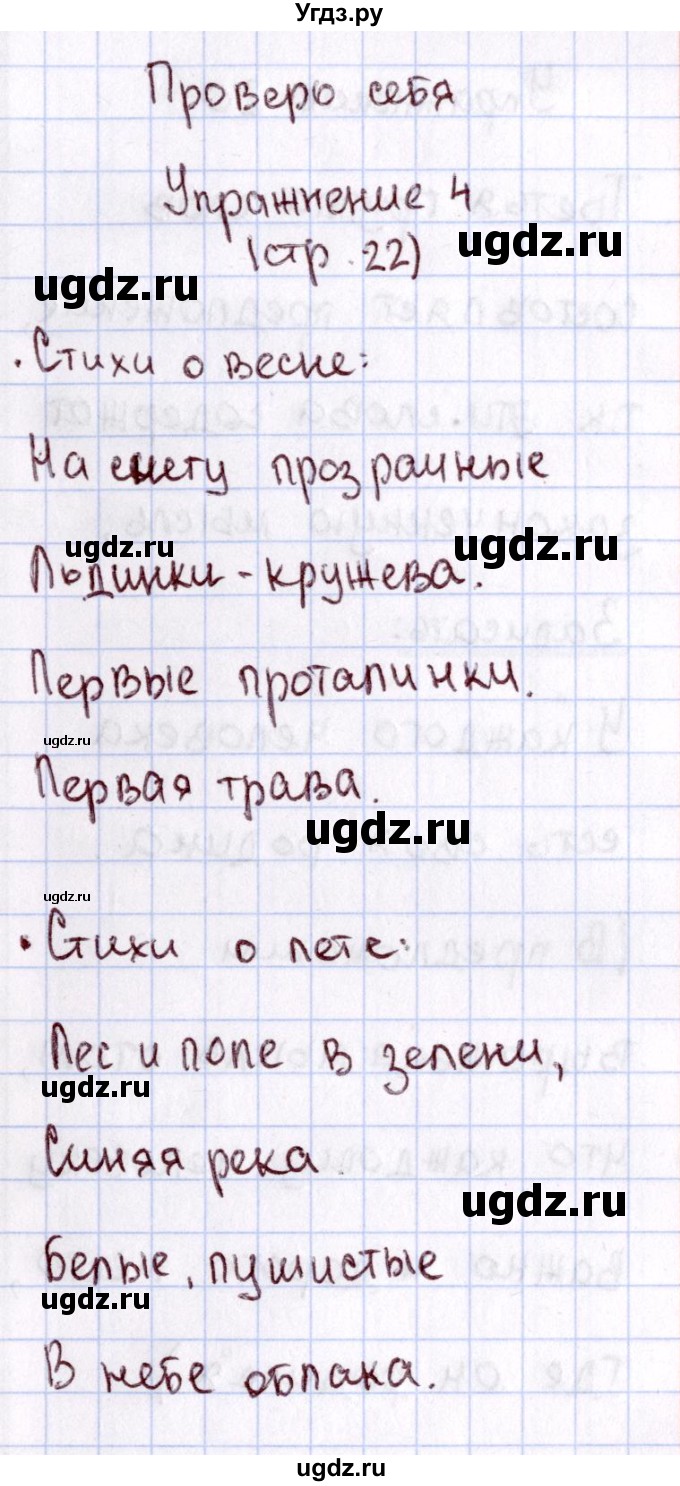 Угдз.ру
Проверю себя
Упражнение 4
ugdz.ru
(стр. 22)
ugdz.ru
· Стихи о весне:
На снегу прозрачные
ugdz.ru
ugdz.ru
Льдинки - кружева.
Первые проталинки.
ugdz.ru
Первая трава.
ugdz.ru
ugdz.ru
· Стихи о лете:
Лес и поле в зелени,
ugdz.ru
Синяя река.
ugdz.ru
Белые, пушистые
ugdz.ru
В небе облака.
ugdz.ru